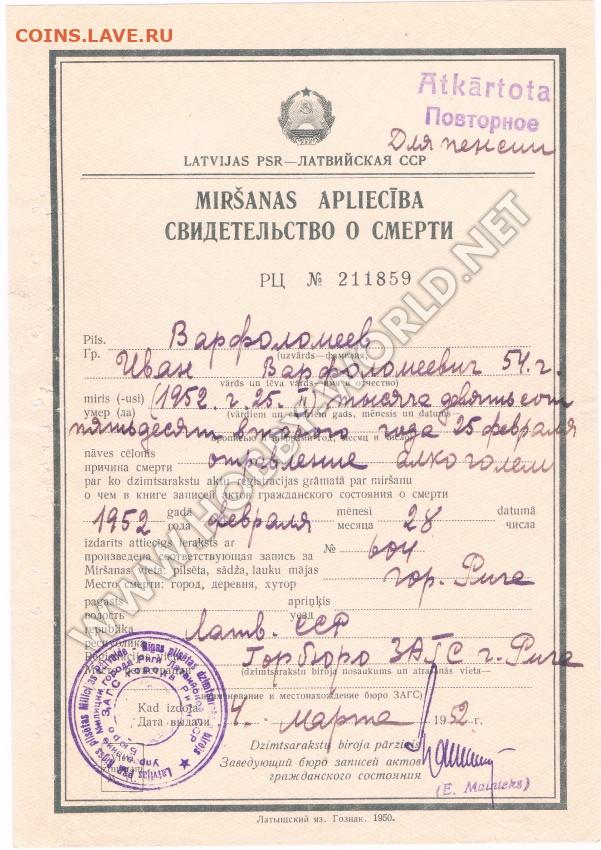 COINS.LAVE.RU
Atkārtota
Повторное
Для пенсии
LATVIJAS PSR—ЛАТВИЙСКАЯ ССР
MIRŠANAS APLIECĪBA
СВИДЕТЕЛЬСТВО О СМЕРТИ
РЦ № 211859
Pils. Варфоломеев
Гр. (uzvārds—фамилия,
Иван Варфоломеевич 54 г.
vārds un tēva vārds—имя и отчество)
miris (-usi) (1952 г. 25. II) тысяча девятьсот
умер (ла) (vārdiem un cipariem gads, mēnesis un datums
пятьдесят второго года 25 февраля
прописью и цифрами год, месяц и число)
nāves cēlonis отравление алкоголем
причина смерти
par ko dzimtsarakstu aktu reģistrācijas grāmatā par miršanu
о чем в книге записей актов гражданского состояния о смерти
1952 gada февраля mēnesi 28 datumā
года месяца числа
izdarīts attiecīgs ieraksts ar № 604
произведена соответствующая запись за
Miršanas vieta: pilsēta, sādža, lauku mājas гор. Рига
Место смерти: город, деревня, хутор
pagasts apriņķis
волость уезд
republika Латв. ССР
республика
Горбюро ЗАГС г. Рига
(dzimtsarakstu biroja nosaukums un atrašanās vieta—
наименование и местонахождение бюро ЗАГС)
Kad izdota 4. марта 1952 г.
Дата выдачи
Dzimtsarakstu biroja pārzinis
Заведующий бюро записей актов
гражданского состояния
Латышский яз. Гознак. 1950.
WWW.HOBBY-WORLD.NET